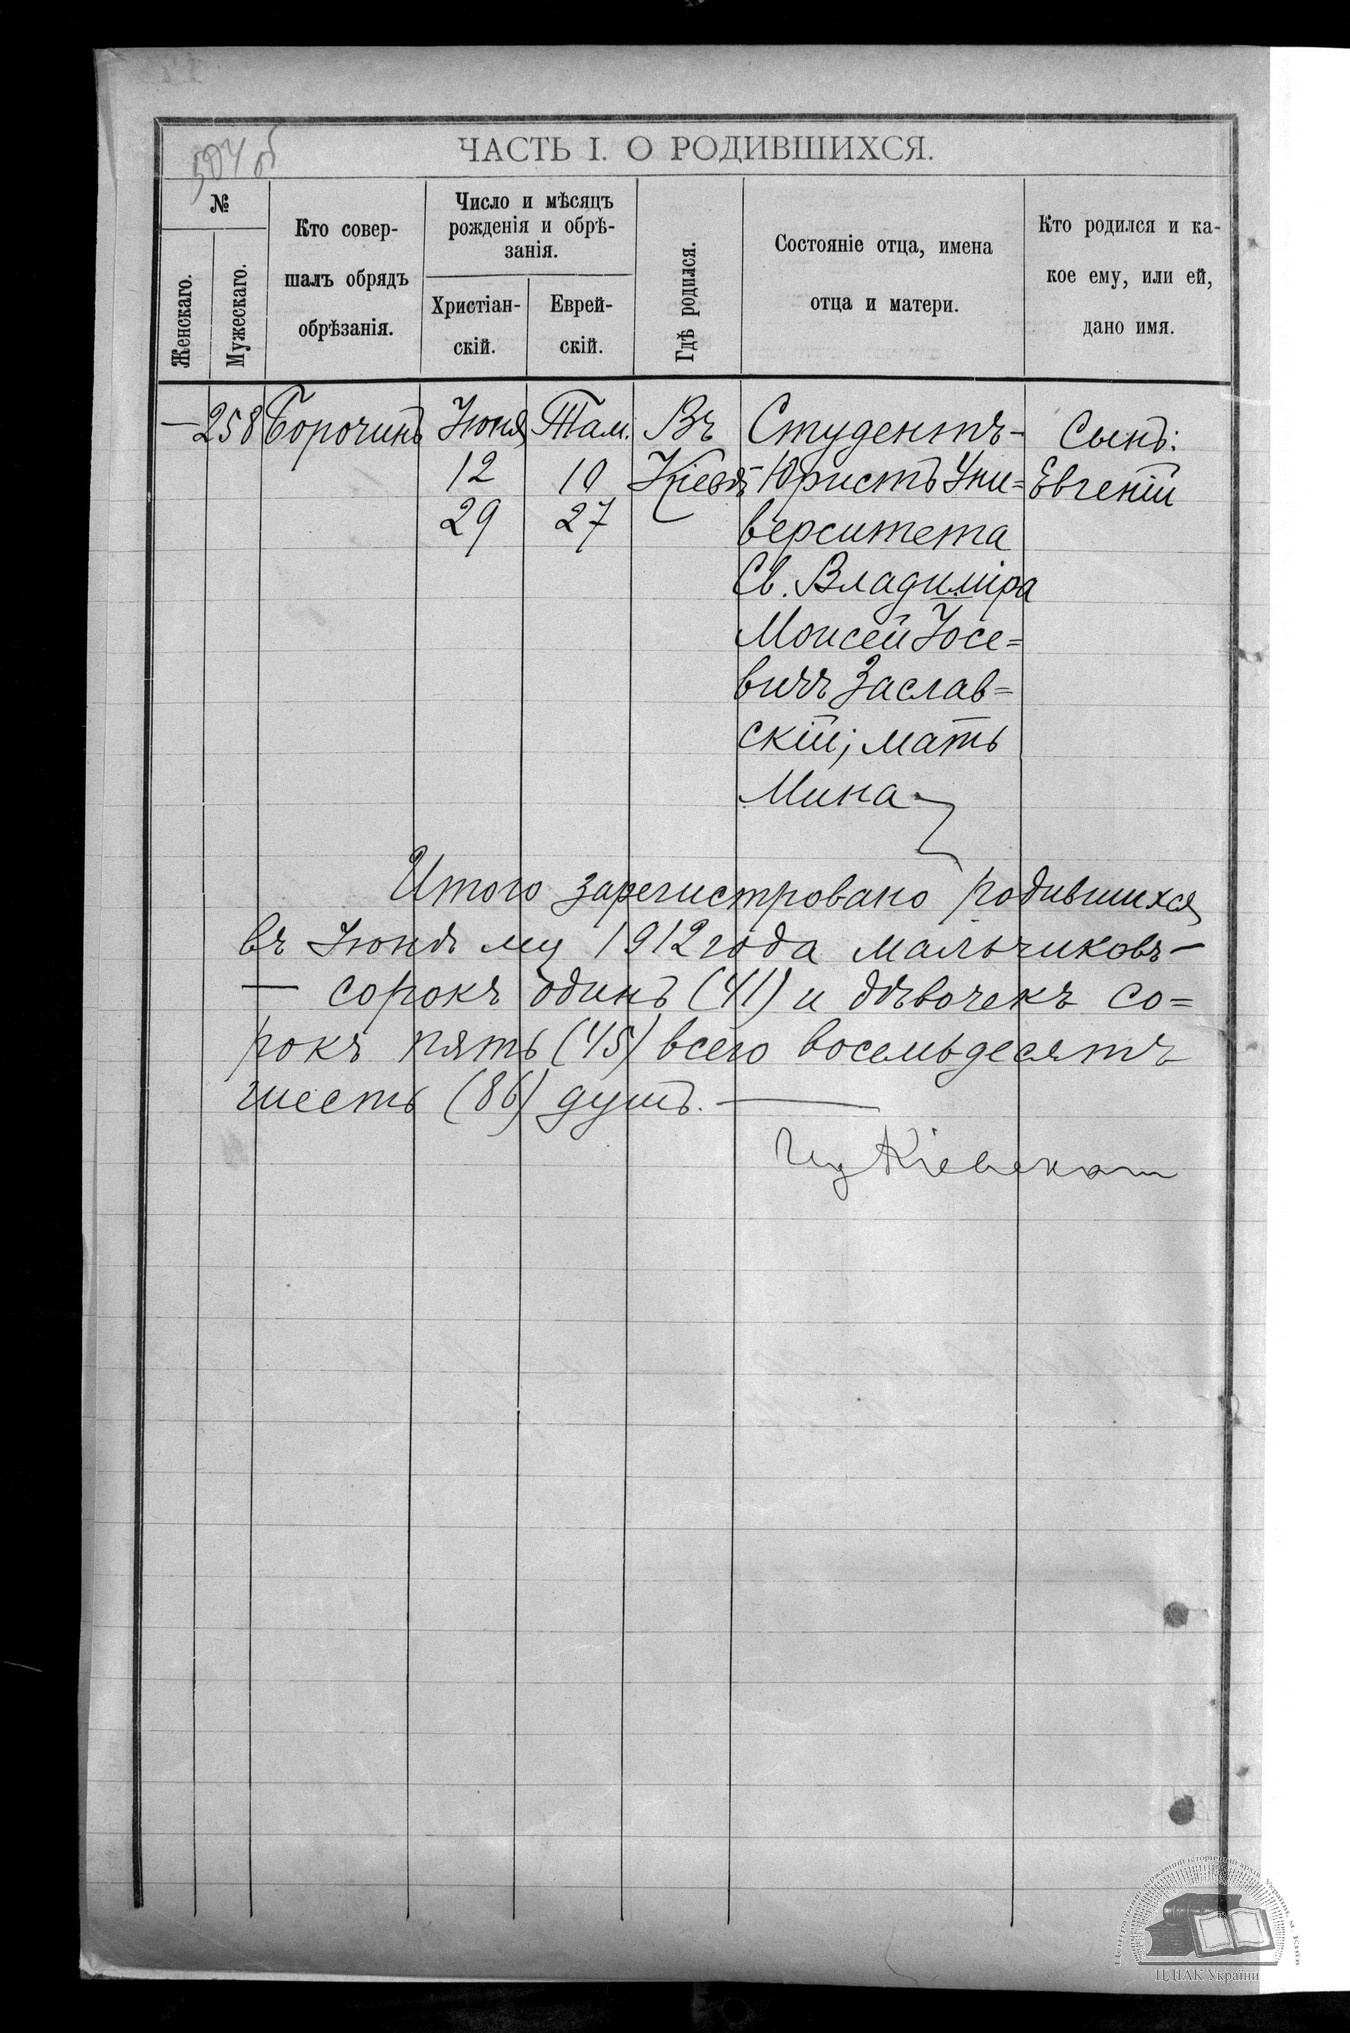 504 об
ЧАСТЬ I. О РОДИВШИХСЯ.
№
Женскаго.
Мужескаго.
Кто совер-
шалъ обрядъ
обрѣзанія.
Число и мѣсяцъ
рожденія и обрѣ-
занія.
Христіан-
скій.
Еврей-
скій.
Гдѣ родился.
Состояніе отца, имена
отца и матери.
Кто родился и ка-
кое ему, или ей,
дано имя.
— 258 Борочинъ Іюня Там. Въ Студентъ- Сынъ:
12 10 Кіевѣ Юристъ Уни= Евгеній
29 27 верситета
Св. Владиміра
Моисей Іосе=
вичъ Заслав=
скій; мать
Мина
Итого зарегистровано родившихся
въ Іюнѣ мц 1912 года мальчиковъ —
— сорокъ одинъ (41) и дѣвочекъ со=
рокъ пять (45) всего восемьдесятъ
шесть (86) душъ. —
ЦДІАК України